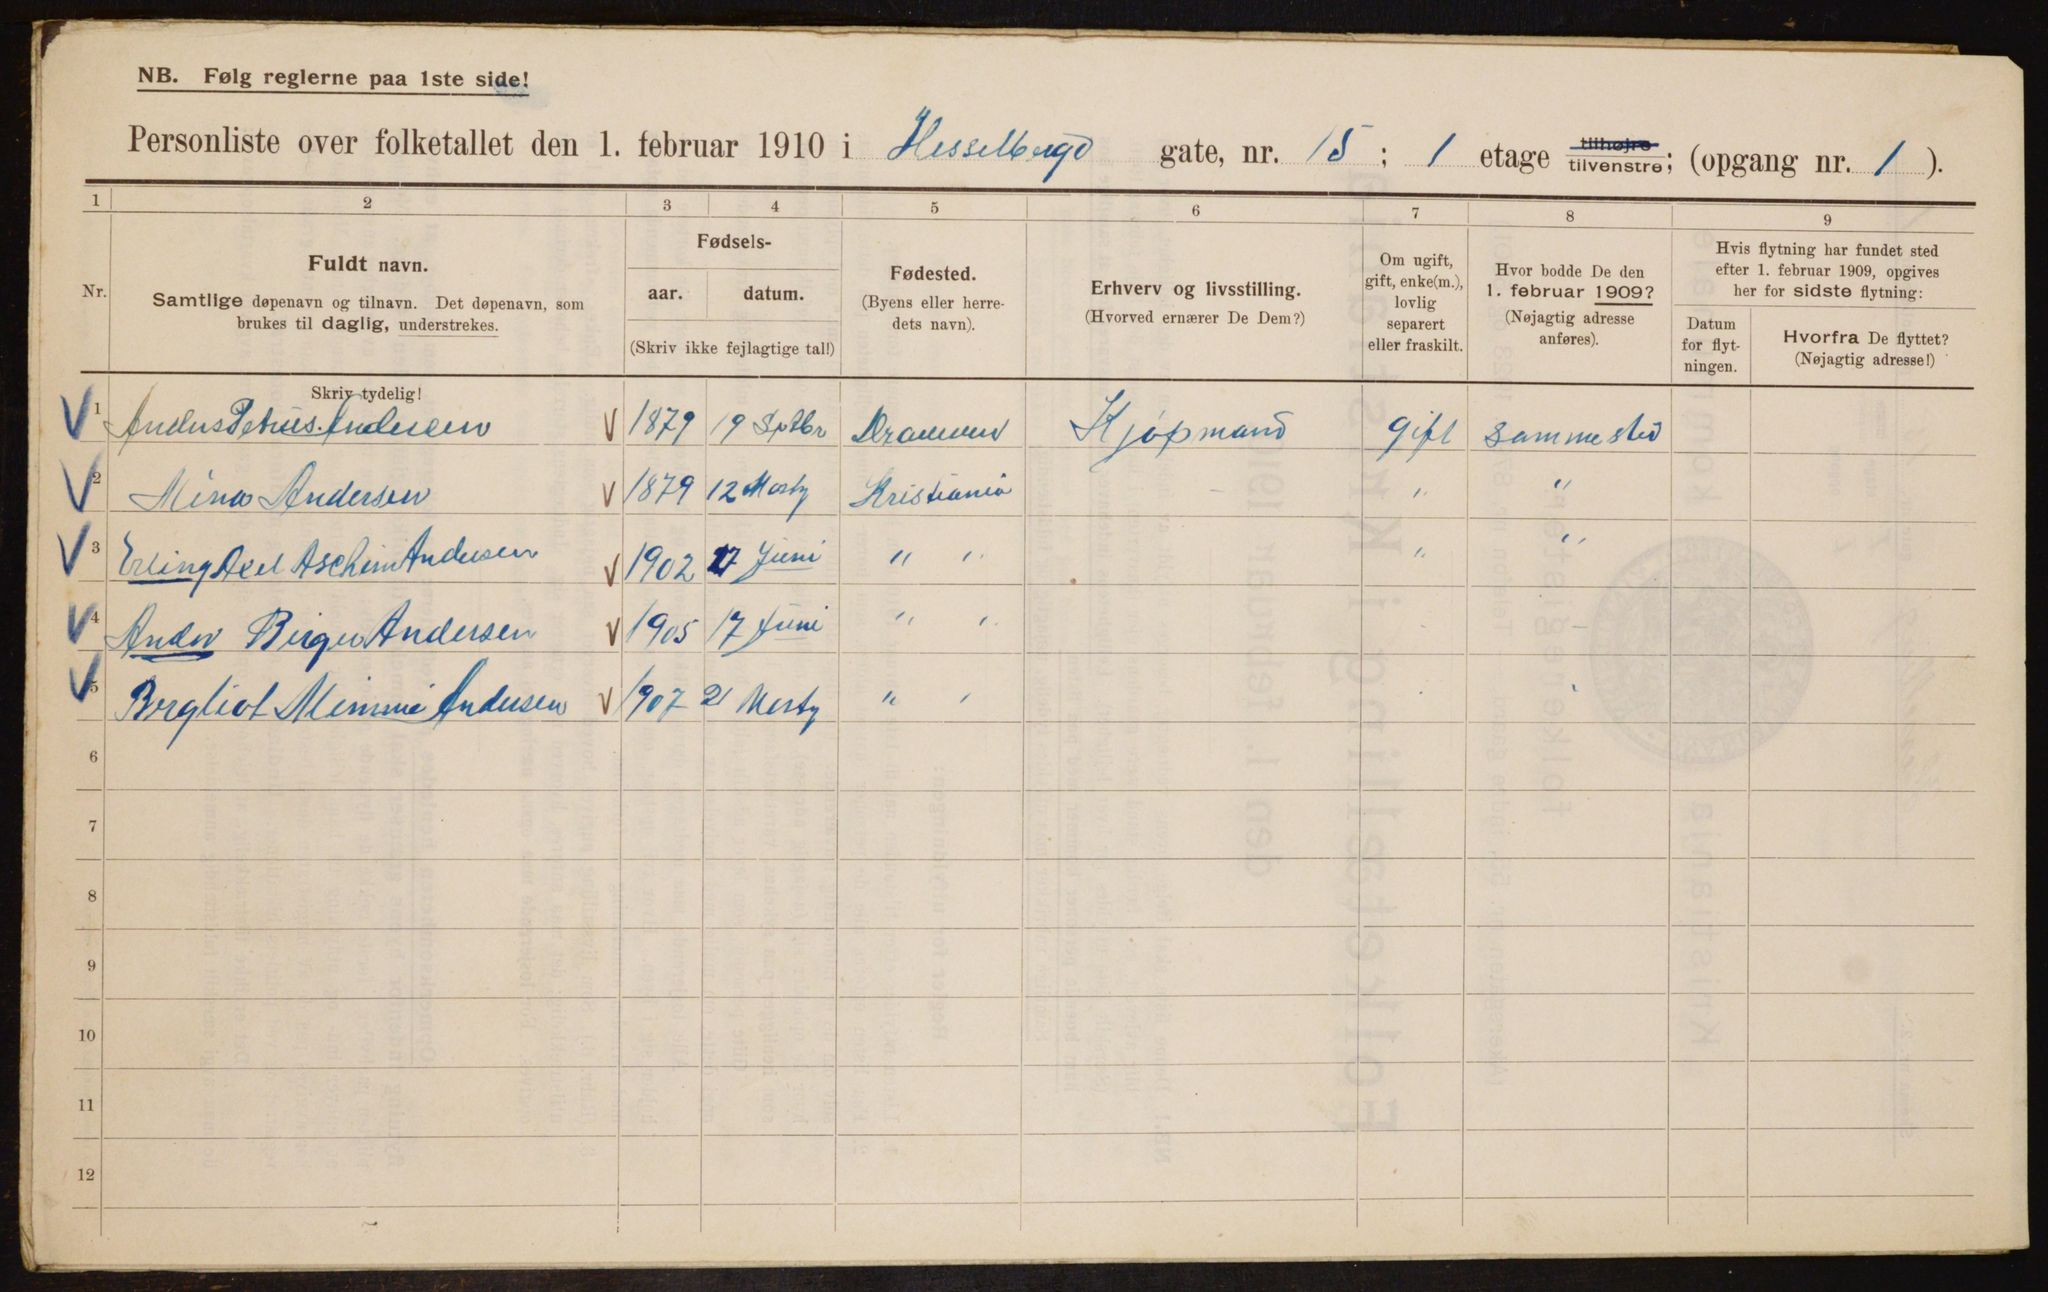 NB. Følg reglerne paa 1ste side!
Personliste over folketallet den 1. februar 1910 i Hesselbergs gate, nr. 15 ; 1 etage tilhøjre tilvenstre; (opgang nr. 1 ).
1 2 3 4 5 6 7 8 9
Nr.
Fuldt navn.
Samtlige døpenavn og tilnavn. Det døpenavn, som
brukes til daglig, understrekes.
Skriv tydelig!
Fødsels-
aar. datum.
(Skriv ikke fejlagtige tal!)
Fødested.
(Byens eller herre-
dets navn).
Erhverv og livsstilling.
(Hvorved ernærer De Dem?)
Om ugift,
gift, enke(m.),
lovlig
separert
eller fraskilt.
Hvor bodde De den
1. februar 1909?
(Nøjagtig adresse
anføres).
Hvis flytning har fundet sted
efter 1. februar 1909, opgives
her for sidste flytning:
Datum
for flyt-
ningen.
Hvorfra De flyttet?
(Nøjagtig adresse!)
1 Anders Petrus Andersen 1879 19 Sptbr Drammen Kjøpmand gift Sammested
2 Mina Andersen 1879 12 Kristiania - " "
3 Erling Axel Andersen 1902 Juni " " " "
4 Birger Andersen 1905 17 Juni " "
5 Bergliot Mimmi Andersen 1907 21 " "
6
7
8
9
10
11
12